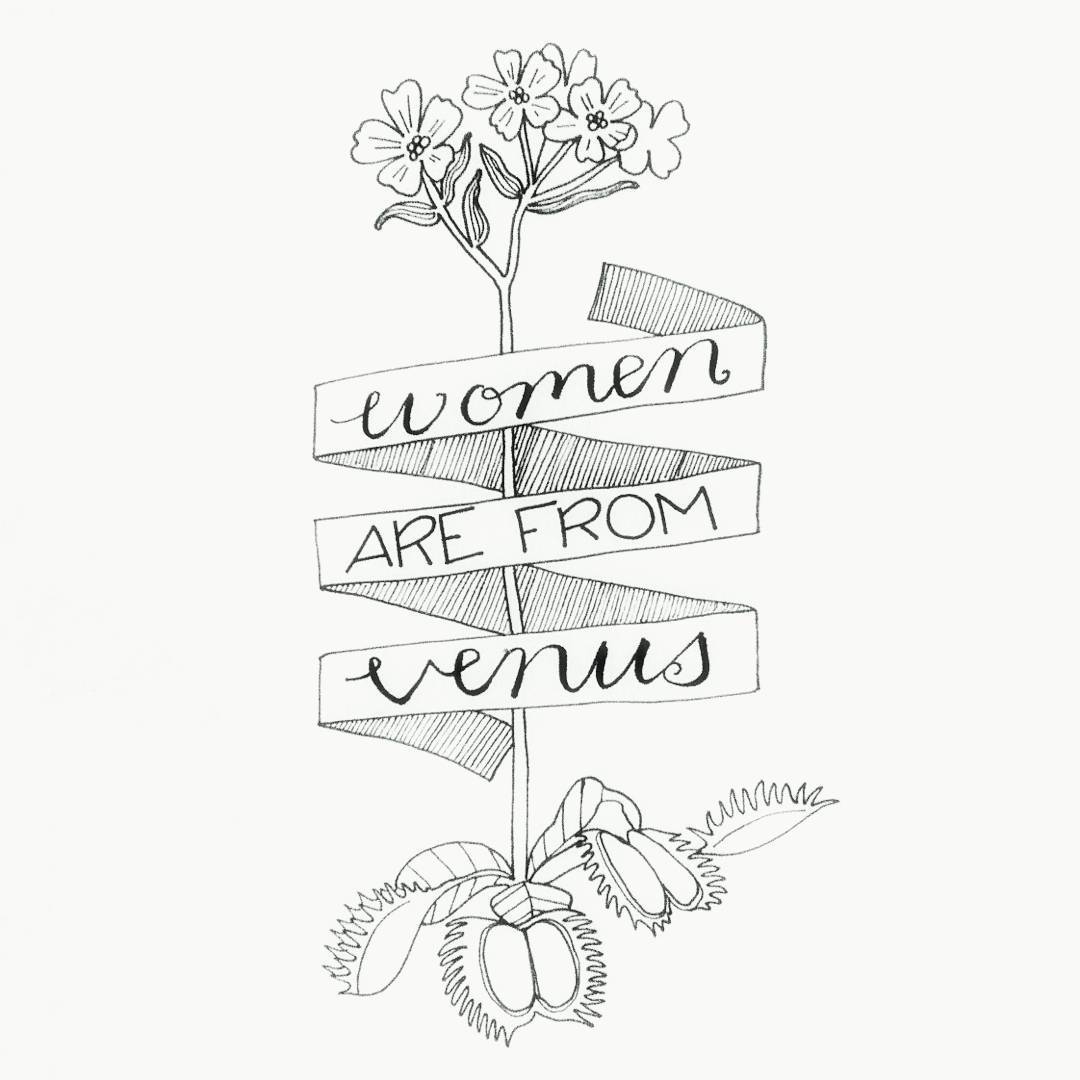 women
ARE FROM
venus